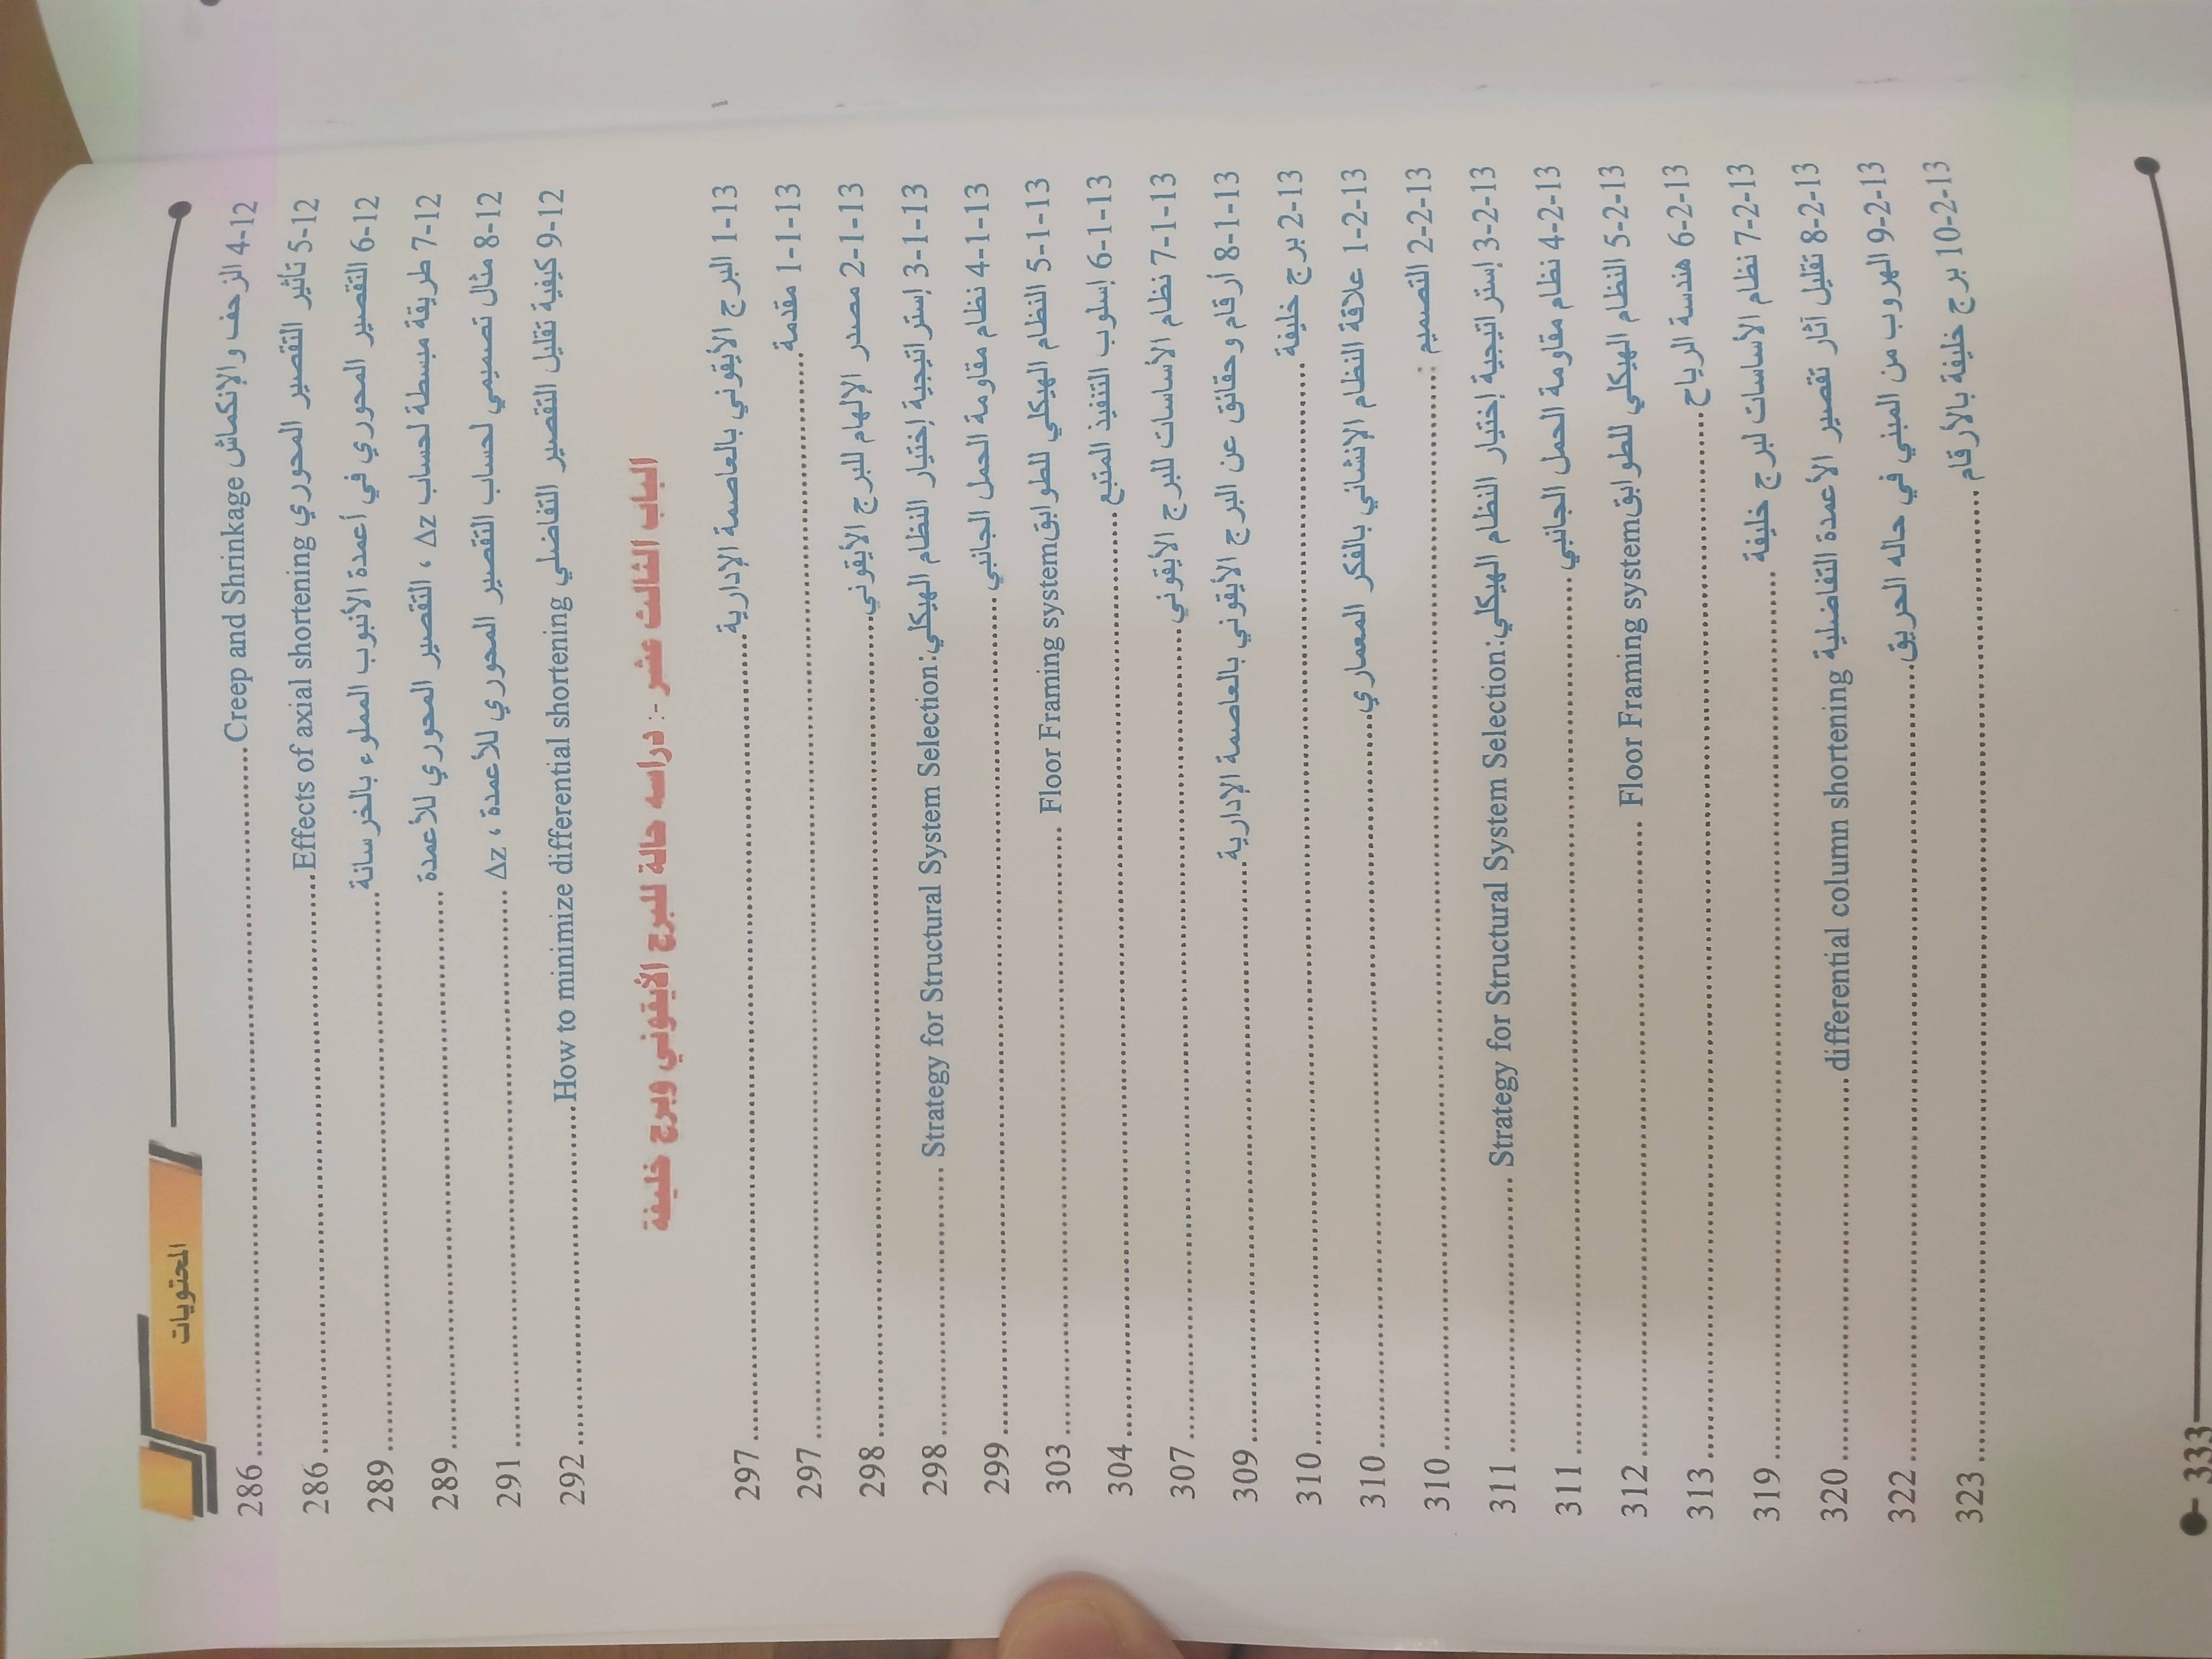 المحتويات
4-12 الزحف والإنكماش Creep and Shrinkage ........ 286
5-12 تأثير التقصير المحوري Effects of axial shortening ........ 286
6-12 التقصير المحوري في أعمدة الأنبوب المملوء بالخرسانة ........ 289
7-12 طريقة مبسطة لحساب Δz ، التقصير المحوري للأعمدة ........ 289
8-12 مثال تصميمي لحساب التقصير المحوري للأعمدة ، Δz ........ 291
9-12 كيفية تقليل التقصير التفاضلي How to minimize differential shortening ........ 292
الباب الثالث عشر :- دراسه حالة للبرج الأيقوني وبرج خليفة
1-13 البرج الأيقوني بالعاصمة الإدارية ........ 297
1-1-13 مقدمة ........ 297
2-1-13 مصدر الإلهام للبرج الأيقوني ........ 298
3-1-13 إستراتيجية إختيار النظام الهيكلي: Strategy for Structural System Selection ........ 298
4-1-13 نظام مقاومة الحمل الجانبي ........ 299
5-1-13 النظام الهيكلي للطوابق Floor Framing system ........ 303
6-1-13 إسلوب التنفيذ المتبع ........ 304
7-1-13 نظام الأساسات للبرج الأيقوني ........ 307
8-1-13 أرقام وحقائق عن البرج الأيقوني بالعاصمة الإدارية ........ 309
2-13 برج خليفة ........ 310
1-2-13 علاقة النظام الإنشائي بالفكر المعماري ........ 310
2-2-13 التصميم ........ 310
3-2-13 إستراتيجية إختيار النظام الهيكلي: Strategy for Structural System Selection ........ 311
4-2-13 نظام مقاومة الحمل الجانبي ........ 311
5-2-13 النظام الهيكلي للطوابق Floor Framing system ........ 312
6-2-13 هندسة الرياح ........ 313
7-2-13 نظام الأساسات لبرج خليفة ........ 319
8-2-13 تقليل آثار تقصير الأعمدة التفاضلية differential column shortening ........ 320
9-2-13 الهروب من المبني في حاله الحريق ........ 322
10-2-13 برج خليفة بالأرقام ........ 323
333